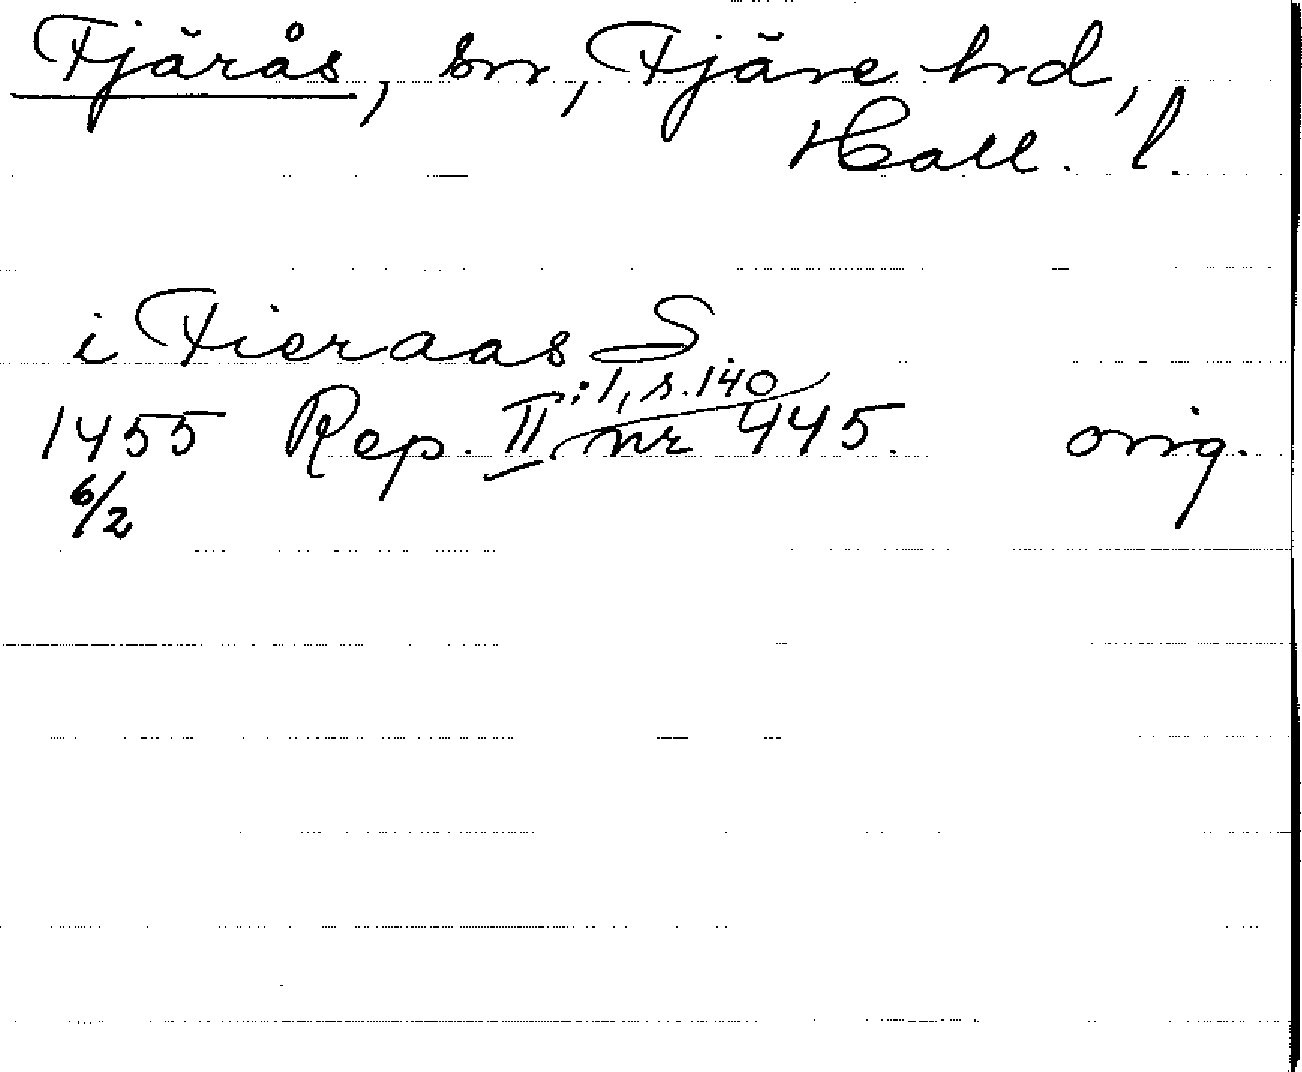 Fjärås, sn, Fjäre hrd,
Hall. l.
i Fieraas S
:1, s. 140
1455 Rep. II nr 445. orig.
6/2